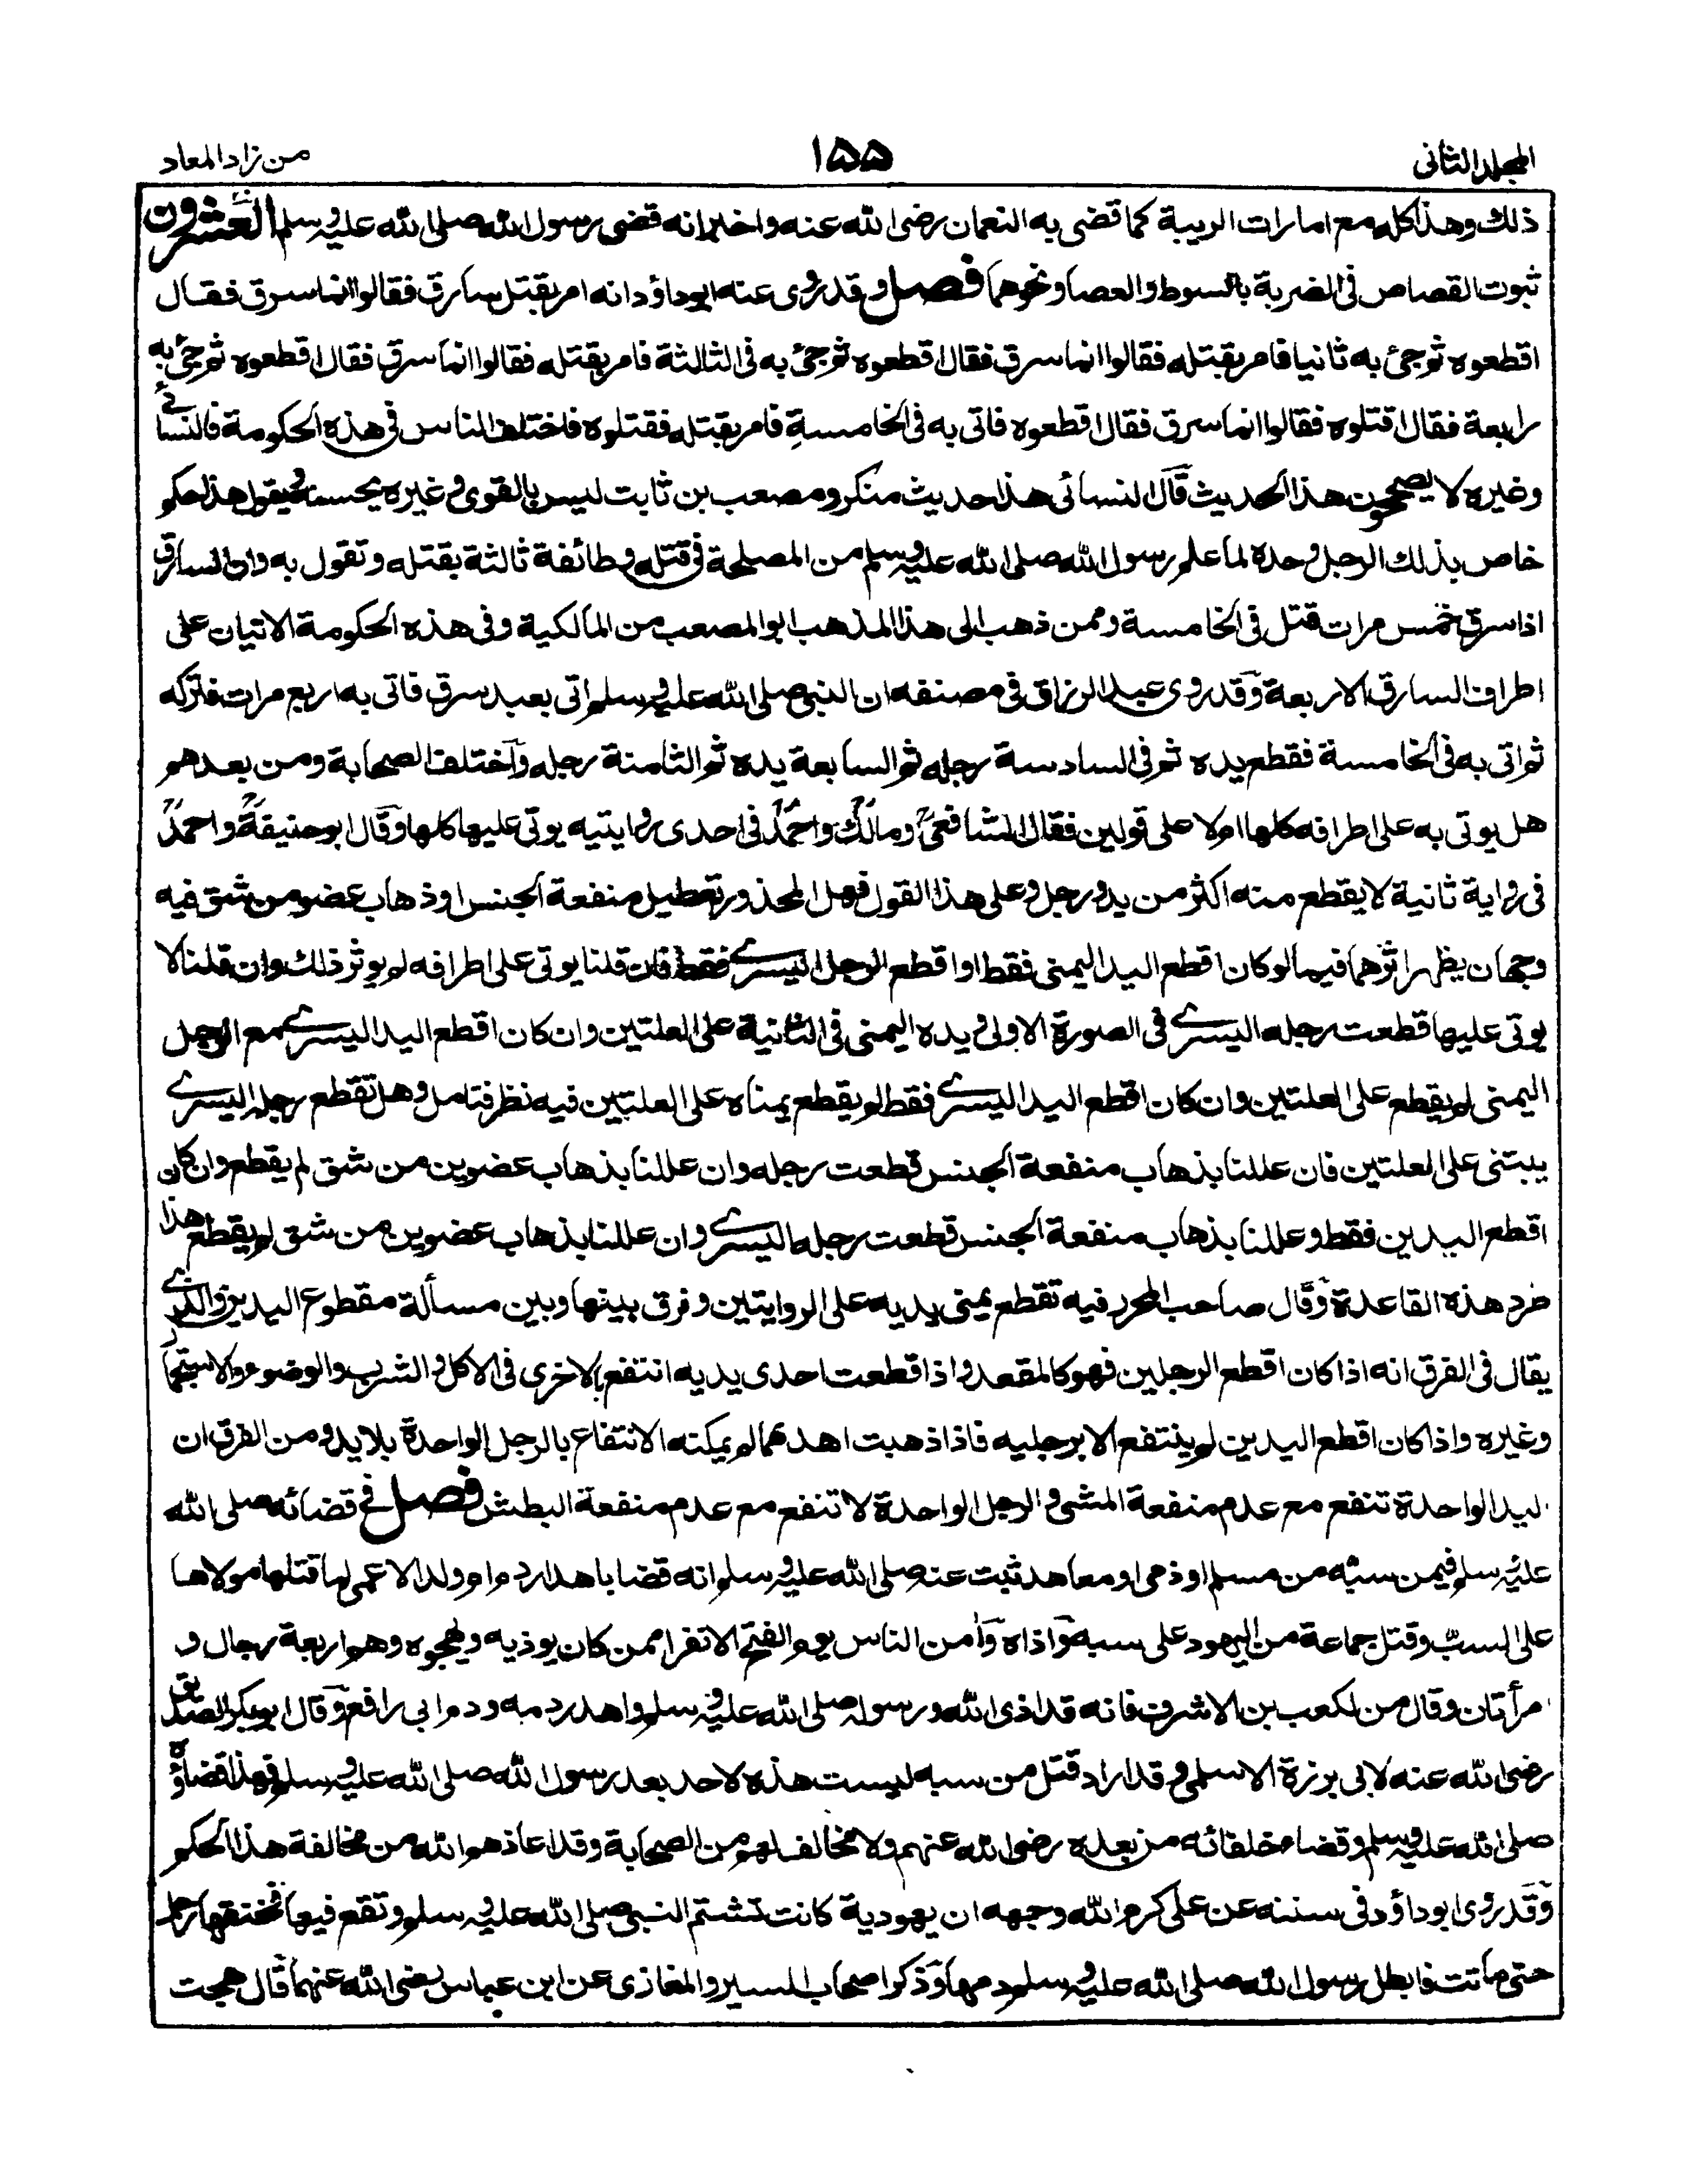 المجلد الثانى
١٥٥
من زاد المعاد
ذلك وهذا كله مع امارات الريبة كما قضى به النعمان رضى الله عنه واخبر انه قضى رسول الله صلى الله عليه وسلم العشرون
ثبوت القصاص فى الضربة بالسوط والعصا ونحوهما فصل وقد روى عنه ابو داؤد انه امر بقتل سارق فقالوا انما سرق فقال
اقطعوه ثم جئ به ثانيا فامر بقتله فقالوا انما سرق فقال اقطعوه ثم جئ به فى الثالثة فامر بقتله فقالوا انما سرق فقال اقطعوه ثم جئ به
رابعة فقال اقتلوه فقالوا انما سرق فقال اقطعوه فاتى به فى الخامسة فامر بقتله فقتلوه فاختلف الناس فى هذه الحكومة فالنسائى
وغيره لا يصححون هذا الحديث قال النسائى هذا حديث منكر ومصعب بن ثابت ليس بالقوى وغيره يحسنه ويقول هذا حكم
خاص بذلك الرجل وحده لما علم رسول الله صلى الله عليه وسلم من المصلحة فى قتله وطائفة ثالثة بقتله وتقول به وان السارق
اذا سرق خمس مرات قتل فى الخامسة وممن ذهب الى هذا المذهب ابو المصعب من المالكية وفى هذه الحكومة الاتيان على
اطراف السارق الاربعة وقد روى عبد الرزاق فى مصنفه ان النبى صلى الله عليه وسلم اتى بعبد سرق فاتى به اربع مرات فتركه
ثم اتى به فى الخامسة فقطع يده ثم فى السادسة رجله ثم السابعة يده ثم الثامنة رجله واختلف الصحابة ومن بعدهم
هل يوتى به على اطرافه كلها ام لا على قولين فقال الشافعى ومالك واحمد فى احدى روايتيه يوتى عليها كلها وقال ابو حنيفة واحمد
فى رواية ثانية لا يقطع منه اكثر من يد ورجل وعلى هذا القول فهل المحذور تعطيل منفعة الجنس او ذهاب عضو من شق فيه
وجهان يظهر اثرهما فيما لو كان اقطع اليد اليمنى فقط او اقطع الرجل اليسرے فقط فان قلنا يوتى على اطرافه لم يوثر ذلك وان قلنا لا
يوتى عليها قطعت رجله اليسرے فى الصورة الاولى ويده اليمنى فى الثانية على العلتين وان كان اقطع اليد اليسرے مع الرجل
اليمنى لم يقطع على العلتين وان كان اقطع اليد اليسرے فقط لم يقطع يمناه على العلتين فيه نظر فتامل وهل تقطع رجله اليسرے
يبتنى على العلتين فان عللنا بذهاب منفعة الجنس قطعت رجله وان عللنا بذهاب عضوين من شق لم يقطع وان كان
اقطع اليدين فقط وعللنا بذهاب منفعة الجنس قطعت رجله اليسرے وان عللنا بذهاب عضوين من شق لم يقطع هذا
طرد هذه القاعدة وقال صاحب المحرر فيه تقطع يمنى يديه على الروايتين وفرق بينها وبين مسألة مقطوع اليدين والذے
يقال فى الفرق انه اذا كان اقطع الرجلين فهو كالمقعد واذا قطعت احدى يديه انتفع بالاخرى فى الاكل والشرب والوضوء والاستجمار
وغيره واذا كان اقطع اليدين لم ينتفع الا برجليه فاذا ذهبت احدهما لم يمكنه الانتفاع بالرجل الواحدة بلا يد ومن الفرق ان
اليد الواحدة تنفع مع عدم منفعة المشى والرجل الواحدة لا تنفع مع عدم منفعة البطش فصل فى قضائه صلى الله
عليه وسلم فيمن سبه من مسلم او ذمى او معاهد ثبت عنه صلى الله عليه وسلم انه قضا باهدار دم ام ولد الاعمى لما قتلها مولاها
على السب وقتل جماعة من اليهود على سبه واذاه وامن الناس يوم الفتح الا نفرا ممن كان يوذيه ويهجوه وهم اربعة رجال و
امرأتان وقال من لكعب بن الاشرف فانه قد اذى الله ورسوله صلى الله عليه وسلم واهدر دمه ودم ابى رافع وقال ابو بكر الصديق
رضى الله عنه لابى برزة الاسلمى وقد اراد قتل من سبه ليست هذه لاحد بعد رسول الله صلى الله عليه وسلم فهذا قضاؤه
صلى الله عليه وسلم وقضاء خلفائه من بعده رضى الله عنهم ولا مخالف لهم من الصحابة وقد اعاذهم الله من مخالفة هذا الحكم
وقد روى ابو داؤد فى سننه عن على كرم الله وجهه ان يهودية كانت تشتم النبى صلى الله عليه وسلم وتقع فيها فخنقها رجل
حتى ماتت فابطل رسول الله صلى الله عليه وسلم دمها وذكر اصحاب السير والمغازى عن ابن عباس رضى الله عنهما قال هجت